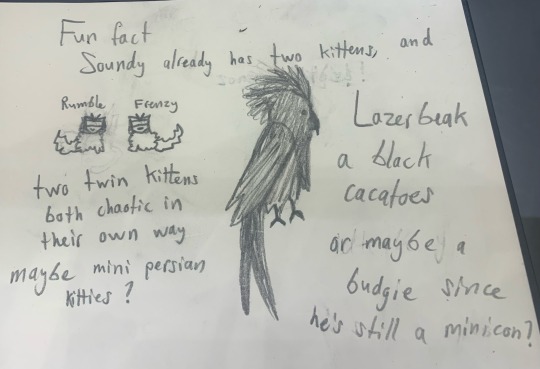 Fun fact
Soundy already has two kittens, and
Rumble Frenzy
two twin kittens
both chaotic in
their own way
maybe mini persian
kitties?
Lazerbeak
a black
cacatoes
or maybe a
budgie since
he's still a minicon?